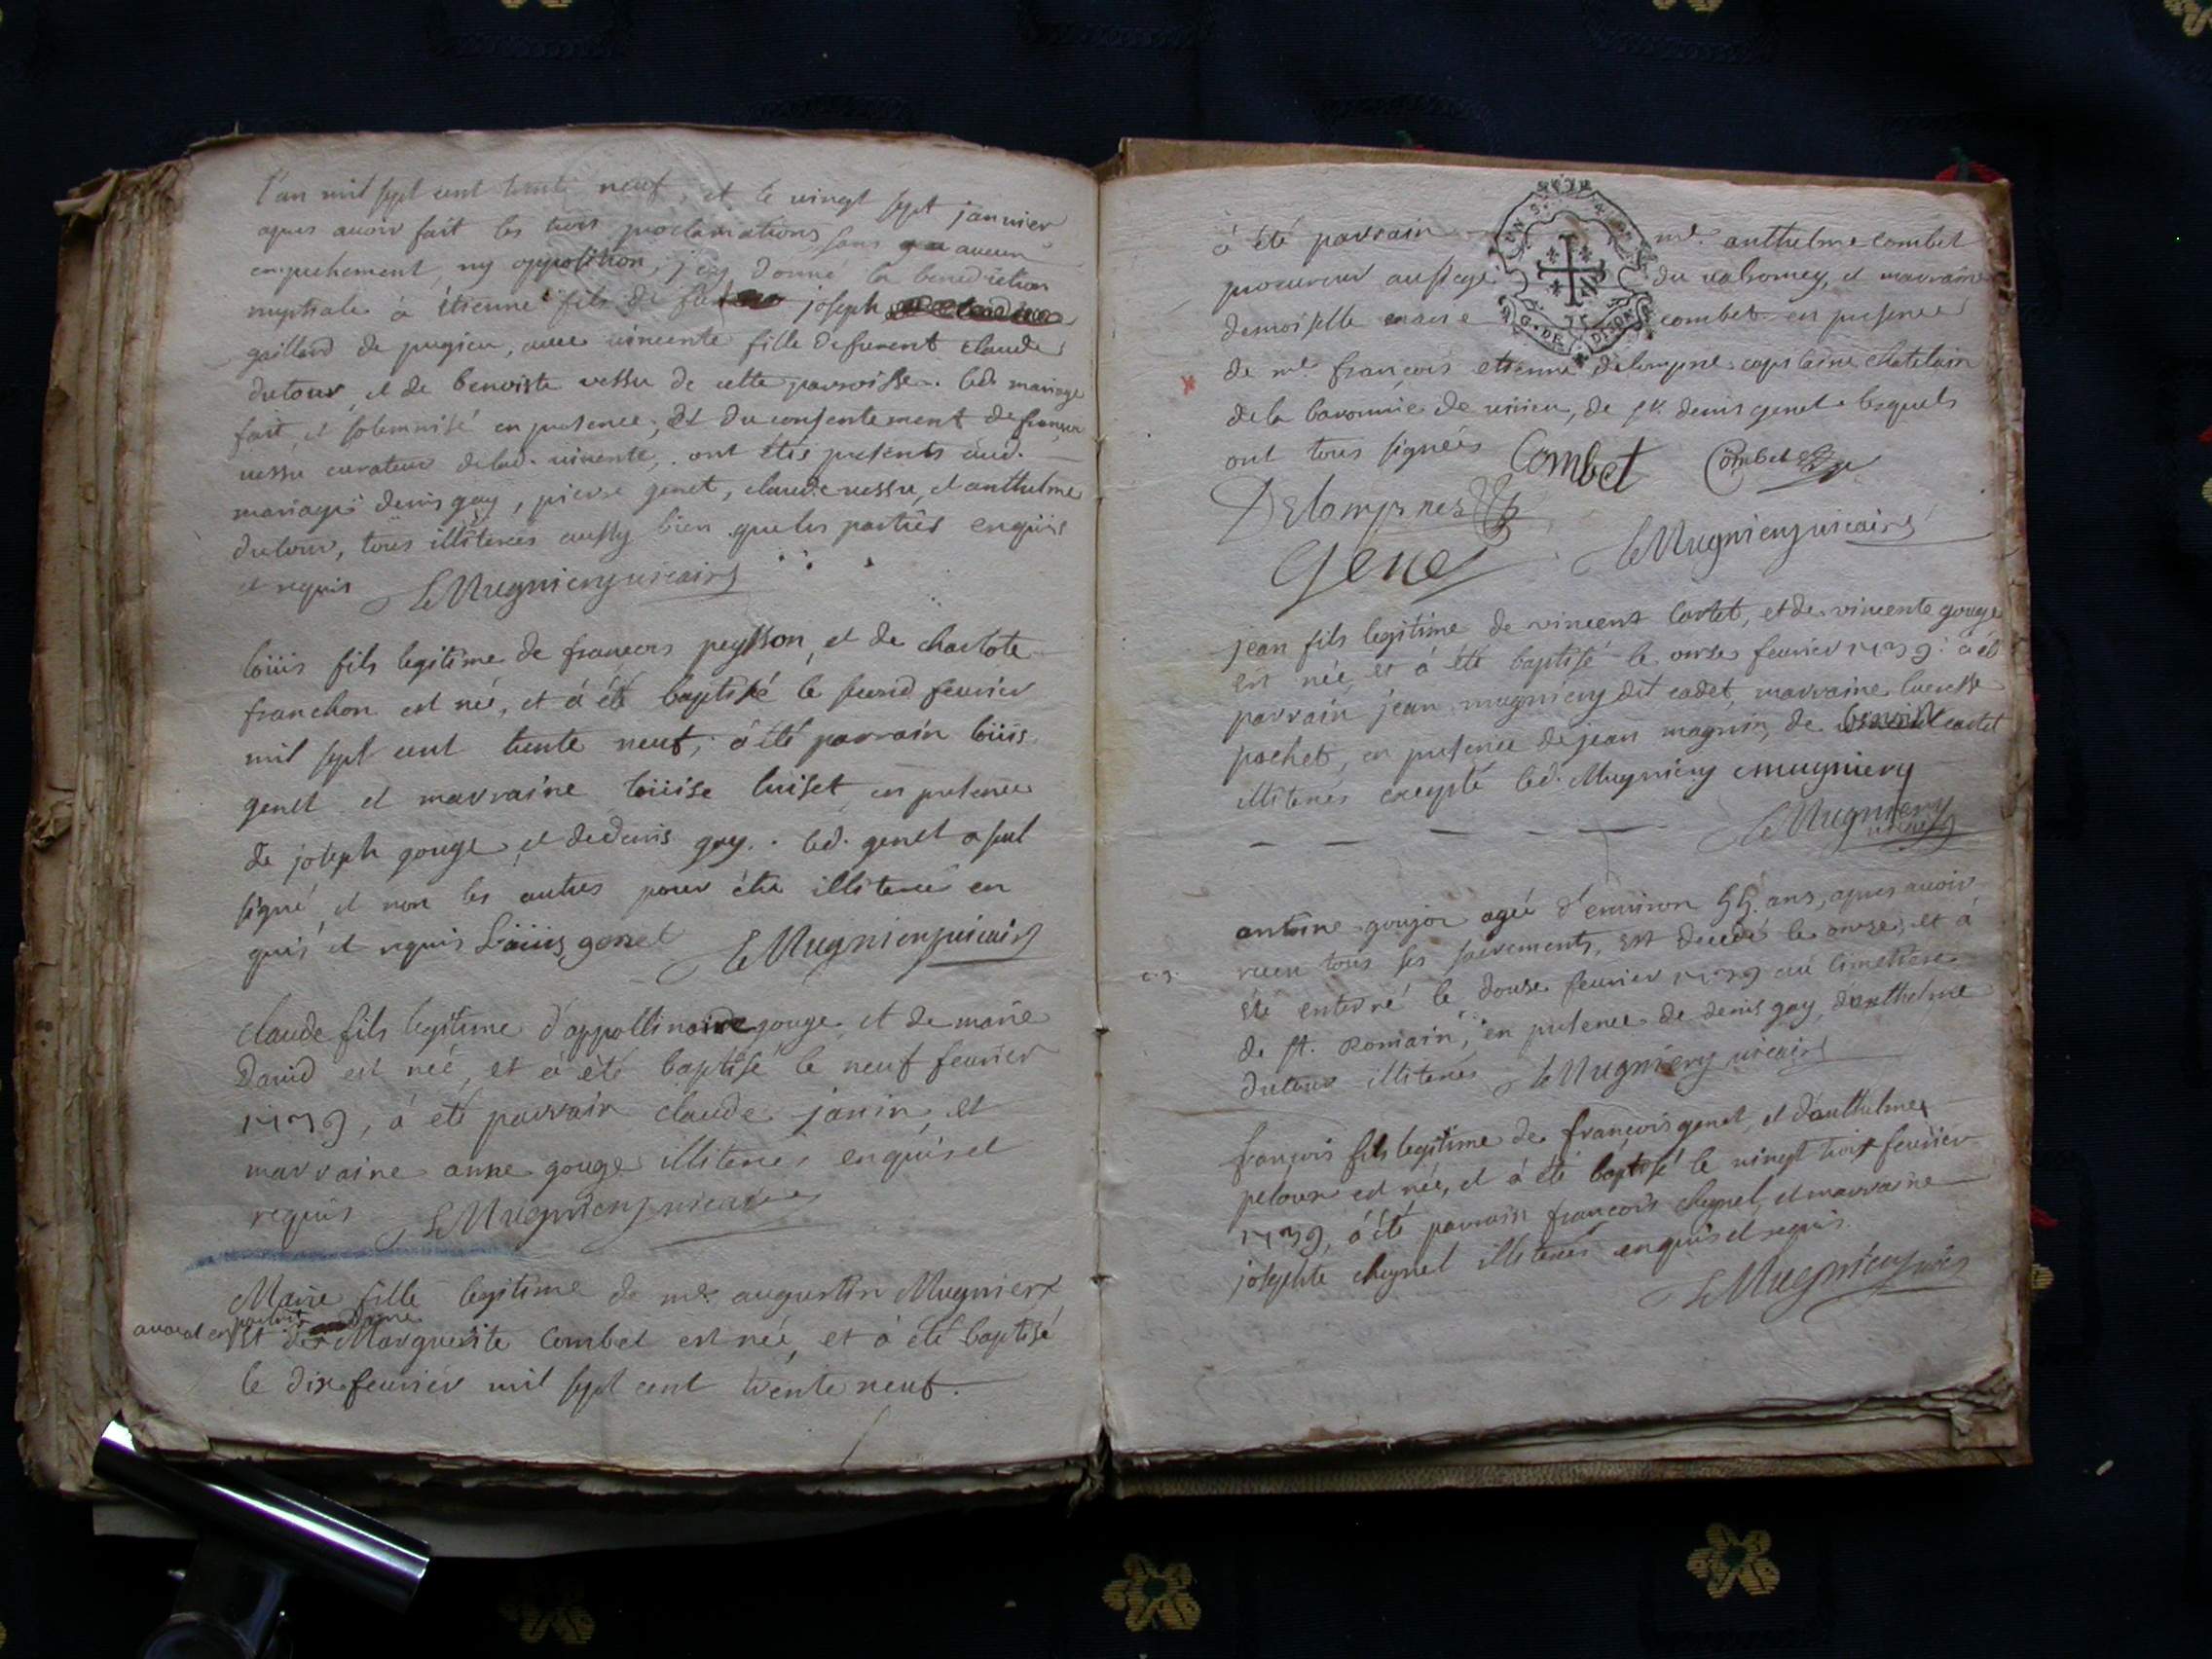 l'an mil sept cent trente neuf, et le vingt sept janvier
apres avoir fait les trois proclamations sans aucun
empechement ny opposition, j'ay donné la benediction
nuptiale à étienne fils de feu joseph
gaillard de pugieu, avec vincente fille defurent claude
dutour, et de benoiste vessu de cette parroisse. led. mariage
fait et solemnisé en presence, et du consentement de françois
vessu curateur delad. vincente, ont étés presents aud.
mariage denis gay, pierre genet, claude vessu, et anthelme
dutour, tous illiterés aussy bien que les parties enquis
et requis LeMugnieryvicaire
loüis fils legitime de francois peysson, et de charlote
franchon est née, et à été baptisé le fevrier
mil sept cent trente neuf, à été parrain loüis
genet et marraine loüise luiset en presence
de joseph gouge et dedenis gay. led. genet a seul
signé, et non les autres pour étre illiteré en
quis et requis Loüis genet LeMugnieryvicaire
claude fils legitime d'appollinaire gouge et de marie
David est née, et à été baptisé le neuf fevrier
1739, à été parrain claude janin, et
marraine anne gouge illiterés enquis et
requis LeMugnieryvicaire
Marie fille legitime de me. augustin Mugniery
avocat en parlement et de dame Marguerite Combet est née, et à été baptisé
le dix fevrier mil sept cent trente neuf.
à été parrain me. anthelme combet
procureur au siege du valromey, et marraine
demoiselle marie combet en presence
de me. françois etienne delompne capitaine chatelain
dela baronnie de virieu, de sr. denis genet lesquels
ont tous signées Combet Combet
Delompnes
Genet LeMugnieryvicaire
jean fils legitime de vincent cartet, et de vincente gouge
est née, et à été baptisé le onze fevrier 1739. à été
parrain jean mugniery dit cadet, marraine lucresse
pochet, en presence de jean magnin, de benoist cartet
illiterés excepté led. Mugniery mugniery
LeMugniery
vicaire
antoine goujon agée d'environ 55 ans, apres avoir
receu tous ses sacrements, est decedé le onze, et à
été enterré le douze fevrier 1739 au cimetiere
de st. Romain, en presence de denis gay, d'anthelme
dutour illiterés LeMugniery vicaire
françois fils legitime de françois genet, et d'anthelme
peloux est née, et à été baptisé le vingt trois fevrier
1739, à été parrain francois cheynel, et marraine
josephte cheynel illiterés enquis et requis.
LeMugnieryvic